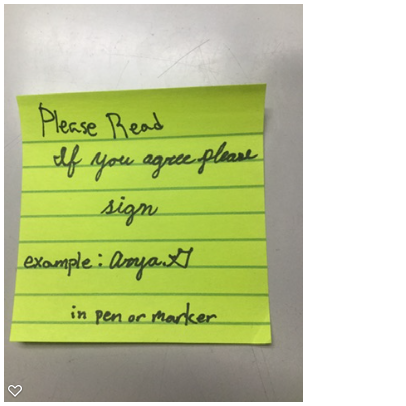 Please Read
If you agree please
sign
example: Arya.G
in pen or marker